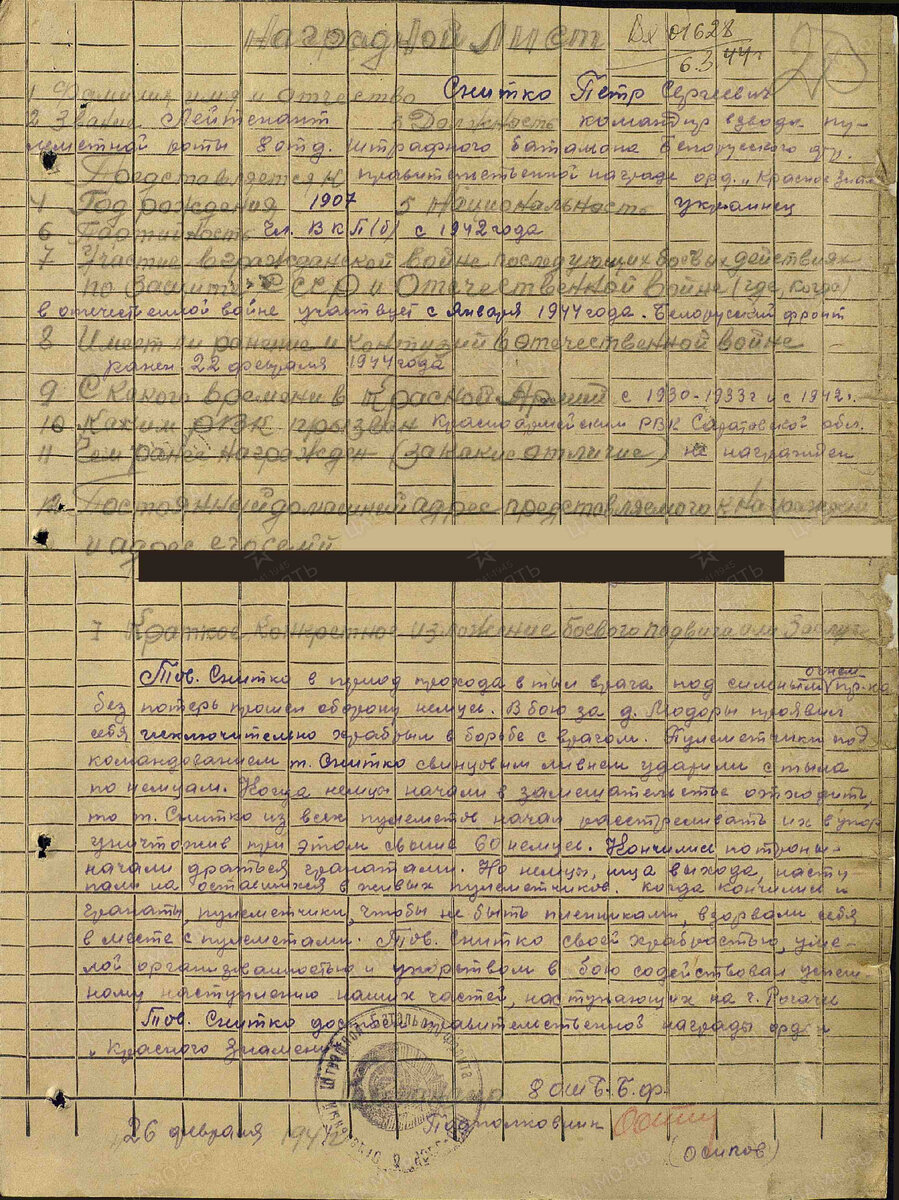 Наградной Лист
Вх 01628
6.3.44г
20
1 Фамилия имя и отчество Снитко Петр Сергеевич
2 Звание Лейтенант 3 Должность командир взвода пу-
леметной роты 8 отд. штрафного баталиона Белорусского фр.
Представляется к правительственной награде орд. „Красное Знамя
4 Год рождения 1907 5 Национальность украинец
6 Партийность Чл. ВКП(б) с 1942 года
7 Участие в гражданской войне последующих боевых действиях
по Защите СССР и Отечественной войне (где, когда)
в отечественной войне участвует с Января 1944 года. Белорусский фронт
8 Имеет ли ранение и контузий в отечественной войне
ранен 22 февраля 1944 года
9 С какого времени в Красной Армии с 1930-1933г и с 1942г.
10 Каким РВК призван Красноармейским РВК Саратовской обл.
11 Чем ранее награжден (за какие отличие) не награжден
12 Постоянный домашний адрес представляемого к награждению
и адрес его семьи
I Краткое конкретное изложение боевого подвига или Заслуг
Тов. Снитко в период прохода в тыл врага под сильным огнем пр-ка
без потерь прошел оборону немцев. В бою за д. Мадоры проявил
себя исключительно храбрым в борьбе с врагом. Пулеметчики под
командованием т. Снитко свинцовым ливнем ударили с тыла
по немцам. Когда немцы начали в замешательстве отходить,
то т. Снитко из всех пулеметов начал расстреливать их в упор
уничтожив при этом свыше 60 немцев. Кончились патроны-
начали драться гранатами. Но немцы, ища выхода, насту-
пали на оставшихся в живых пулеметчиков. Когда кончились и
гранаты, пулеметчики, чтобы не быть пленниками, взорвали себя
вместе с пулеметами. Тов. Снитко своей храбростью, уме-
лой организованностью и упорством в бою содействовал успеш-
ному наступлению наших частей, наступающих на г. Рогачев
Тов. Снитко достоин правительственной награды орден
„Красного Знамени
Командир 8 ОШБ Б.Ф.
Подполковник
(Осипов)
26 февраля 1944